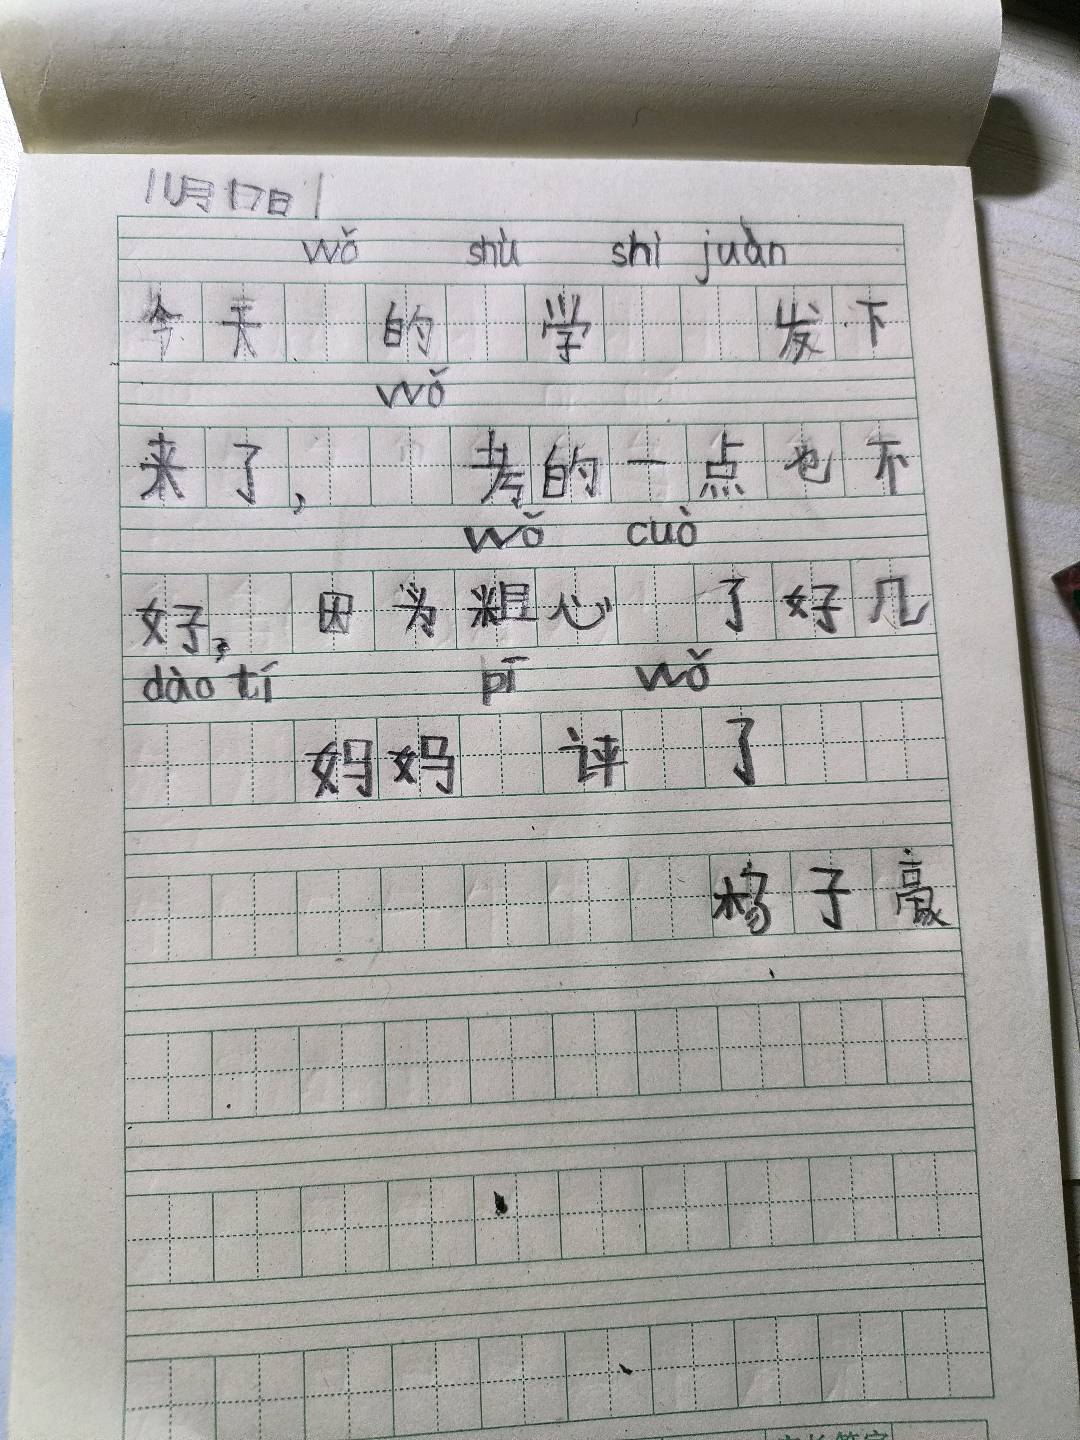 11月17日
wǒ shù shì juàn
今天 的 学 发下
wǒ
来了, 考的一点也不
wǒ cuò
好, 因为粗心 了好几
dào tí pī wǒ
妈妈 评 了
杨子豪